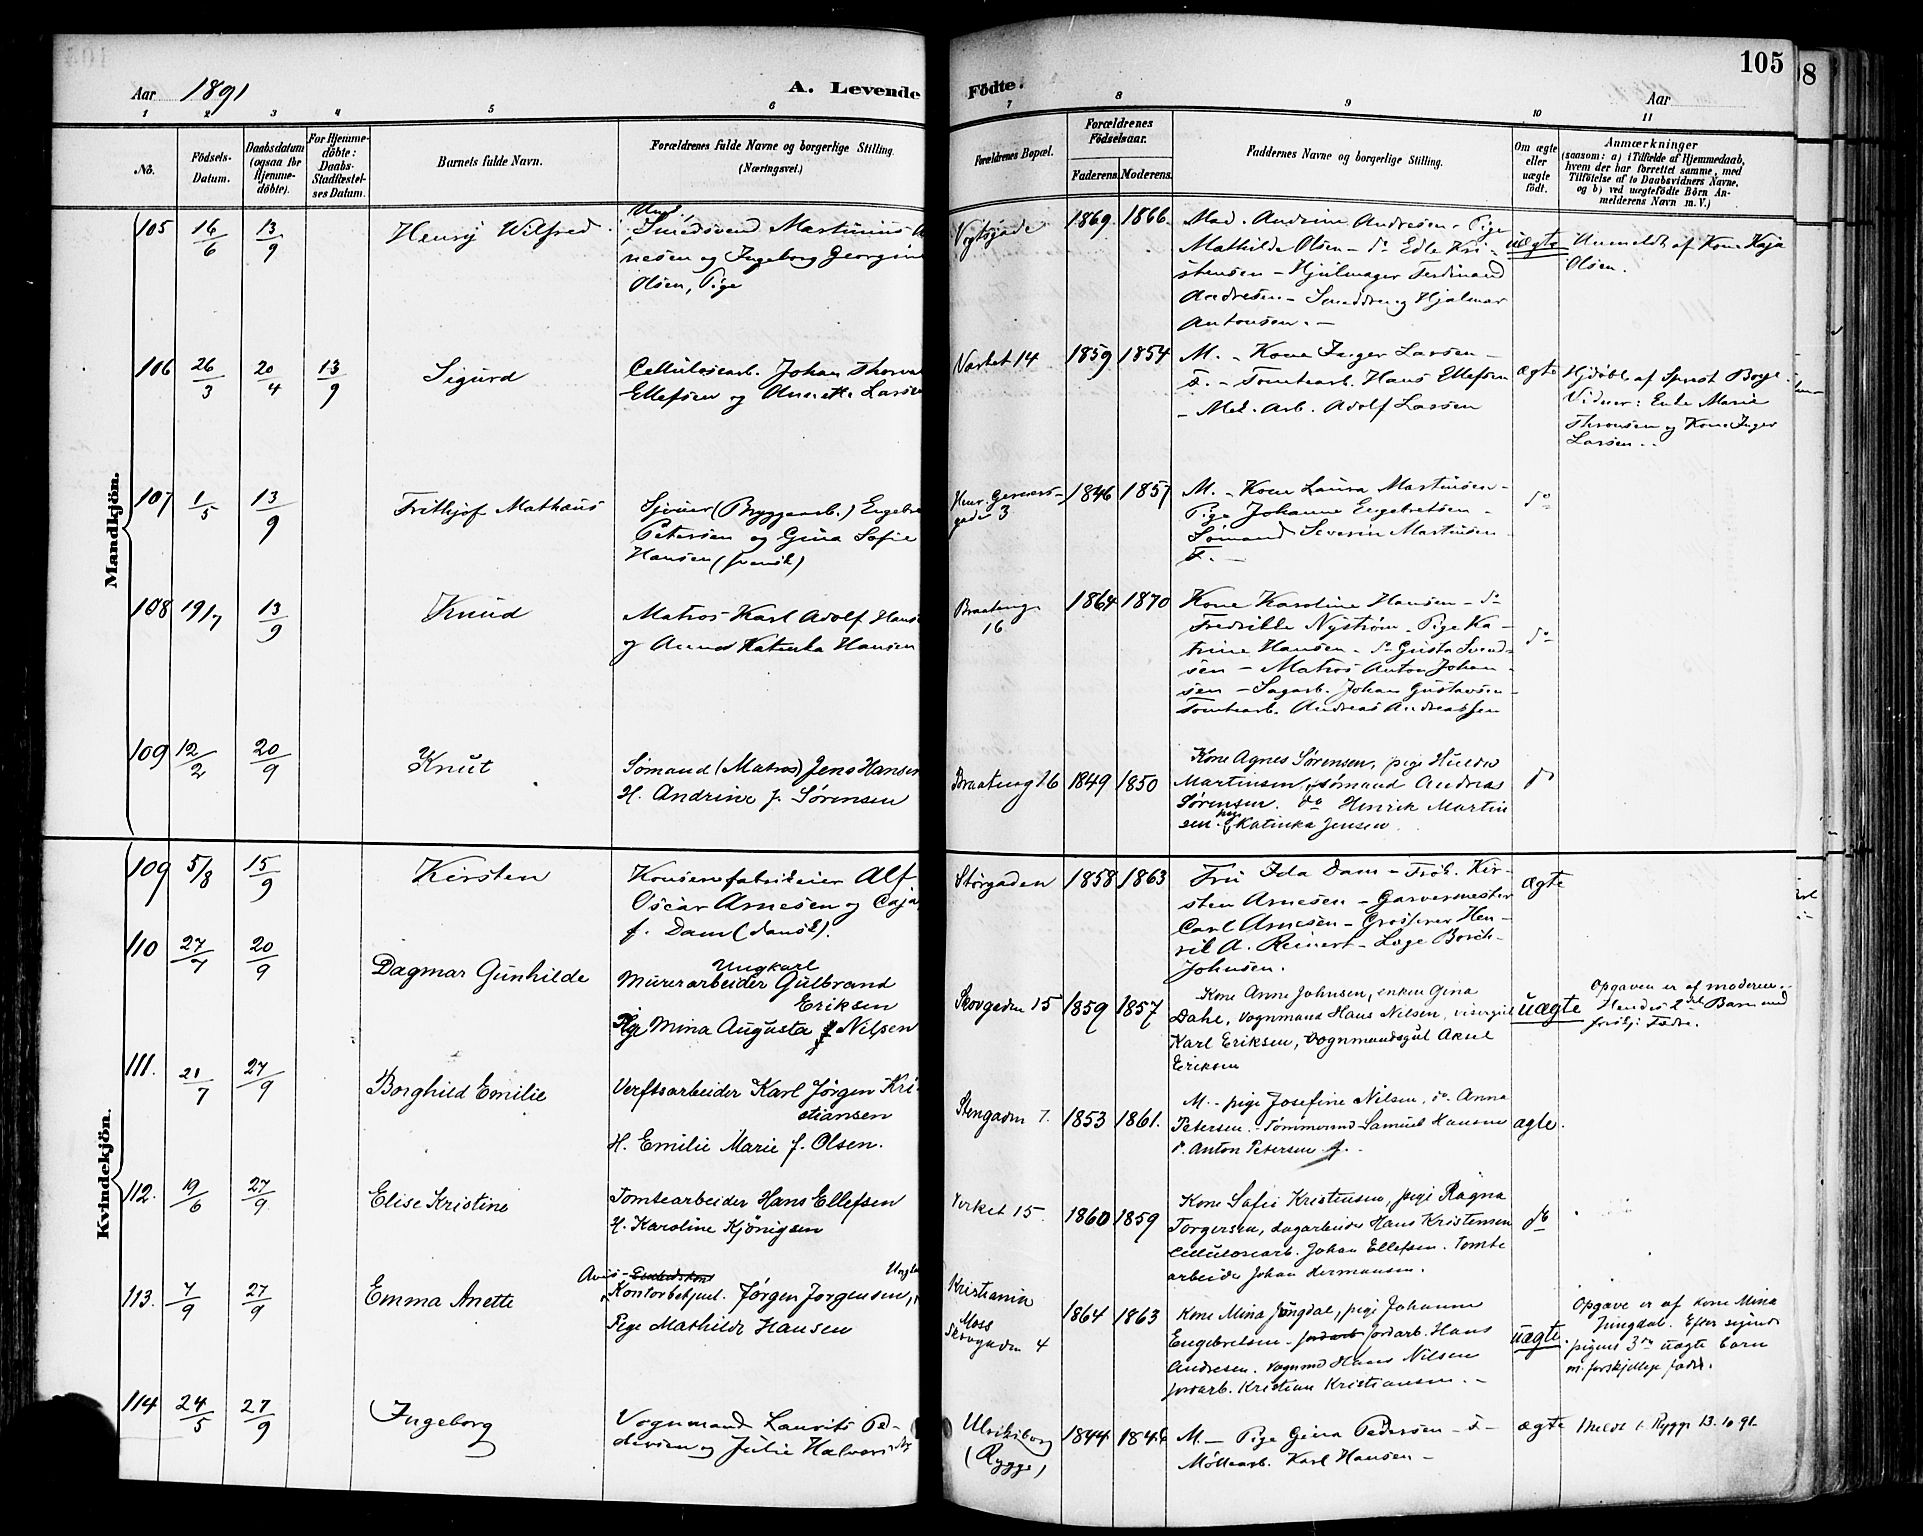 105
Aar 1891 A. Levende Födte. Aar
1 2 3 4 5 6 7 8 9 10 11
No.
Födsels-
Datum.
Daabsdatum
(ogsaa for
Hjemme-
döbte).
For Hjemme-
döbte:
Daabs-
Stadfæstel-
ses Datum.
Barnets fulde Navn.
Forældrenes fulde Navne og borgerlige Stilling.
(Næringsvei.)
Forældrenes Bopæl.
Forældrenes
Födselsaar.
Faderens. Moderens.
Faddernes Navne og borgerlige Stilling.
Om ægte
eller
uægte
födt.
Anmærkninger
(saasom: a) i Tilfælde af Hjemmedaab,
hvem der har forrettet samme, med
Tilföielse af to Daabsvidners Navne.
og b) ved uægtefödte Börn An-
melderens Navn m. V.)
Mandkjön.
105 16/6 13/9 Henry Wilfred
Smedsvend Martinius
nesen og Ingeborg Georgine
Olsen, Pige
Vogtsgade 1869. 1866.
Mad. Andrine Andresen - Pige
Mathilde Olsen - do Edle Kri-
stensen - Hjulmager Ferdinand
Andresen - Smeddreng Hjalmar
Antonsen. -
uægte
Anmeldt af Kone Kaja
Olsen.
106 26/3 20/4 13/9 Sigurd
Cellulosearb. Johan Thorva
Ellefsen og Annette Larsen
Værket 14 1859 1854
M. - Kone Inger Larsen -
F. - Tomtearb. Hans Ellefsen
- Mek. Arb. Adolf Larsen
ægte
Hjdöbt af Sprest Borge.
Vidner: Enke Marie
Thronsen og Kone Inger
Larsen.
107 1/5 13/9 Frithjof Mathæus
Sjouer (Bryggearb.) Engebre
Petersen og Gina Sofie
Hansen (svensk)
Henr. Gerners-
gade 3 1846 1857
M. - Kone Laura Martinsen -
Pige Johanne Engebretsen -
Sømand Severin Martinsen -
F. -
do
108 19/7 13/9 Knud
Matros Karl Adolf Hans
og Anna Katinka Hansen
Braateng.
16 1864 1870
Kone Karoline Hansen - do
Fredrikke Nystrøm - Pige Ka-
trine Hansen - do Gusta Svend-
sen - Matros Anton Johan-
sen - Sagarb. Johan Gustavsen -
Tomtearb. Andreas Andreassen
do
109 12/2 20/9 Knut
Sømand (Matros) Jens Hansen
H. Andrine f. Sørensen
Braateng 16 1849 1850
Kone Agnes Sørensen, pige Hulda
Martinsen, sømand Andreas
Sørensen. do Henrik Martin
sen. pige Katinka Jensen
do
Kvindekjön.
109 5/8 15/9 Kirsten
Konservefabrikeier Alf
Oscar Arnesen og Caja
f. Dam (dansk).
Storgaden 1858 1863
Fru Ida Dam - Frøk. Kir-
sten Arnesen - Garvermester
Carl Arnesen - Grosserer Hen-
rik A. Reinert - Læge Borch-
Johnsen.
ægte
110 27/7 20/9 Dagmar Gunhilde
Ungkarl
Murerarbeider Gulbrand
Eriksen
Pige Mina Augusta Nilsen
Skovgaden 15 1859 1857
Kone Anne Johnsen, enken Gina
Dahl, vognmand Hans Nilsen, visergut
Karl Eriksen, vognmandsgut Aksel
Eriksen
uægte
Opgaven er af moderen.
Hendes 2det Barn med
forskj. Fædre.
111. 21/7 27/9 Borghild Emilie
Verftsarbeider Karl Jørgen Kri-
stiansen
H. Emilie Marie f. Olsen.
Stengaden 7. 1853 1861.
M. - pige Josefine Nilsen, do Anna
Petersen. - Tømmermd Samuel Hansen
S. Anton Petersen f. -
ægte.
112. 19/6 27/9 Elise Kristine
Tomtearbeider Hans Ellefsen
H. Karoline Kjönigsen
Verket 15. 1860 1859
Kone Sofie Kristensen, pige Ragna
Torgersen, dagarbeider Hans Kristensen
Cellulosearb. Johan Ellefsen. Tomte
arbeider Johan Hermansen.
do
113. 7/9 27/9 Emma Anette
Avis-
Kontorbetjent. Jørgen Jørgensen,
Pige Mathilde Hansen
Kristiania
Moss
Skovgaden 4 1864 1863
Kone Mina Jüngdal, pige Johanne
Engebretsen - jordarb. Hans
Andresen. vognmd Hans Nilsen
jordarb. Kristian Kristiansen. -
uægte
Opgave er af kone Mina
Jungdal. Efter sigende
pigens 3die uægte barn
m. forskjellige fædre.
114 24/5 27/9 Ingeborg
Vognmand Laurits Pe-
dersen og Julie Halvorsdtr
Ulriksborg
(Rygge) 1844 1846
M. - Pige Gina Pedersen - F. -
Mölleearb. Karl Hansen -
ægte
Meldt t. Rygge 13.10 91.